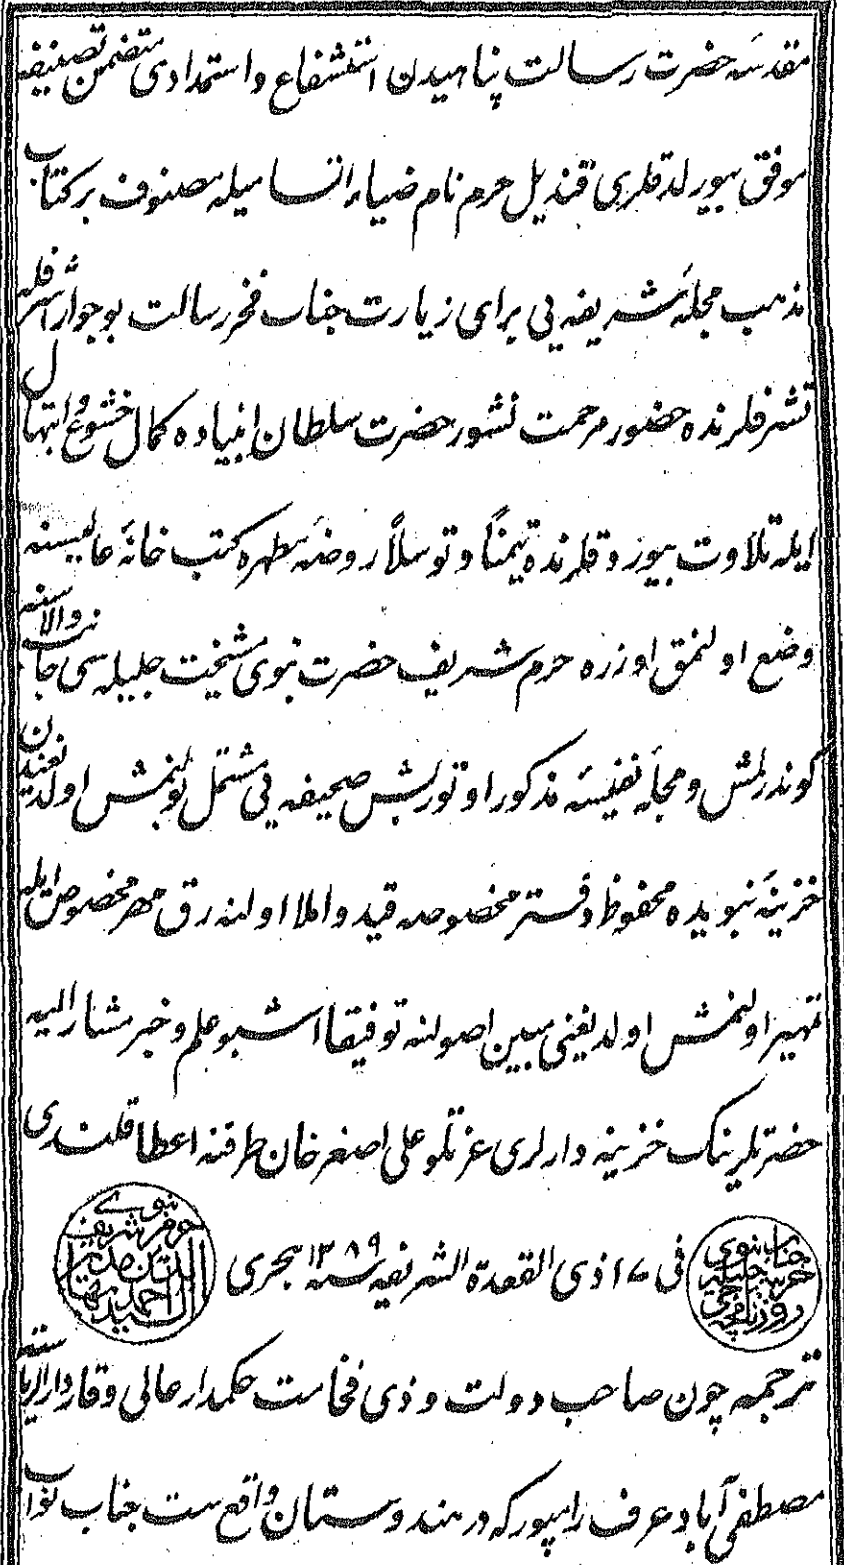 مقدسهٔ حضرت رسالت پناهیدن استشفاع و استمدادی متضمن تصنیفنه
موفق بیورلدقلری قندیل حرم نام ضیاء انسامیله مصنوف بر کتاب
مذهب مجلهٔ شریفه یی برای زیارت جناب فخر رسالت بو جوار اشرفله
تشرفلرنده حضور مرحمت نشور حضرت سلطان انبیاده کمال خشوع و ابتهال
ایله تلاوت بیوردقلرنده تیمناً و توسلاً روضهٔ مطهره کتب خانهٔ عالیسنه
وضع اولنمق اوزره حرم شریف حضرت نبوی مشیخت جلیله سی جانب والاسنه
کوندرلمش و مجلهٔ نفیسهٔ مذکور اوتوربش صحیفه یی مشتمل بولنمش اولدیغندن
خزینهٔ نبویه ده محفوظ دفتر مخصوصه قید و املا اولنه رق مهر مخصوص ایله
تمهیر اولنمش اولدیغنی مبین اصولنه توفیقا اشبو علم و خبر مشار الیه
حضرتلرینک خزینه دارلری عزتلو علی اصغر خان طرفنه اعطا قلندی
فی ۱۷ ذی القعدة الشریفه سنه ۱۲۸۹ هجری
جناب نبوی خزینه جلیله روزنامچه
نبوی حرم شریف السید احمد بها
ترجمه چون صاحب دولت و ذی فخامت حکمدار عالی وقار دار الریاسته
مصطفی آباد عرف رامپور که در هندوستان واقع ست جناب نواب